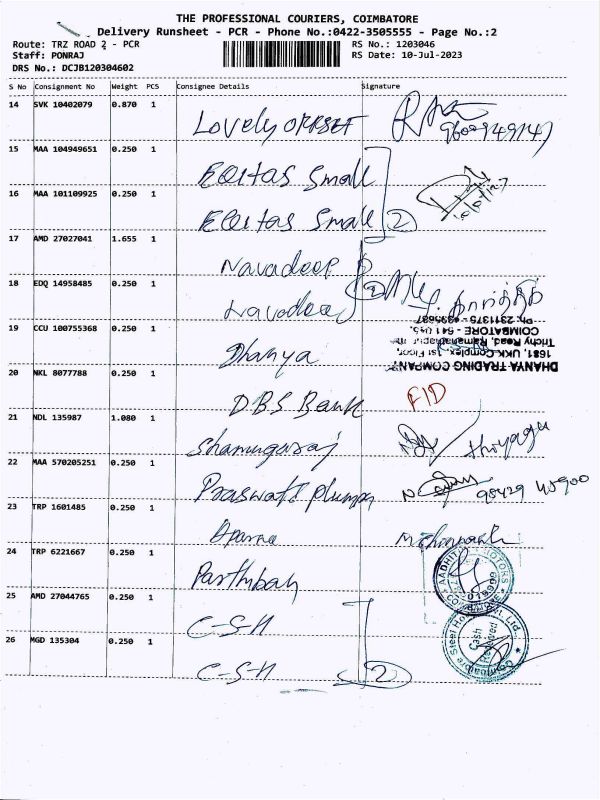 THE PROFESSIONAL COURIERS, COIMBATORE
Delivery Runsheet - PCR - Phone No.:0422-3505555 - Page No.:2
Route: TRZ ROAD 2 - PCR
Staff: PONRAJ
DRS No.: DCJB120304602
RS No.: 1203046
RS Date: 10-Jul-2023
S No Consignment No Weight PCS Consignee Details Signature
14 SVK 10402079 0.870 1 Lovely OFFSET
15 MAA 104949651 0.250 1 Equitas Small
16 MAA 101109925 0.250 1 Equitas Small 2
17 AMD 27027041 1.655 1 Navadeep
18 EDQ 14958485 0.250 1 Navadeep 2
19 CCU 100755368 0.250 1 Dhanya
DHANYA TRADING COMPANY
1681, UKK Complex, 1st Floor,
Trichy Road, Ramanathapuram
COIMBATORE - 641 045.
20 NKL 8077788 0.250 1 DBS Bank FID
21 NDL 135987 1.080 1 Shanmugaraj
22 MAA 570205251 0.250 1 98429 45900
23 TRP 1601485 0.250 1 Aparna
24 TRP 6221667 0.250 1 Parthiban
AADHITYA MOTORS
COIMBATORE
25 AMD 27044765 0.250 1 C-S-H
26 MGD 135304 0.250 1 C-S-H 2
Coimbatore Steel House Pvt. Ltd.,
Cash
Received